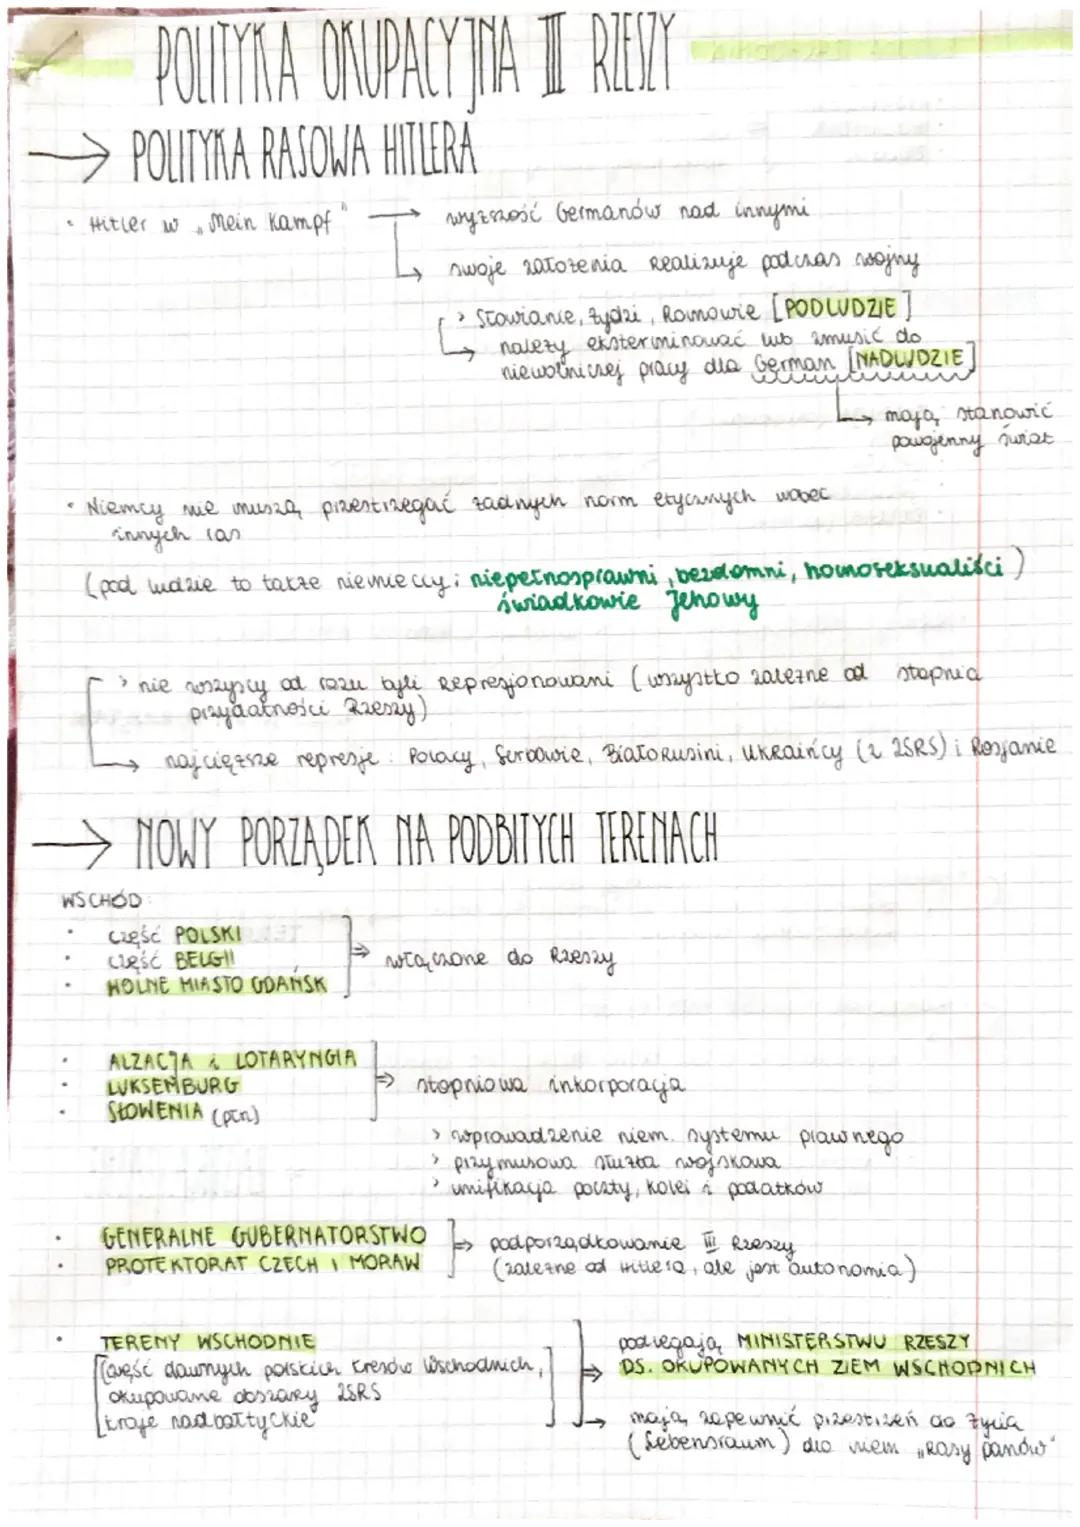 POLITYKA OKUPACYJNA III RZESZY
→ POLITYKA RASOWA HITLERA
• Hitler w „Mein Kampf" → wyższość Germanów nad innymi
↳ swoje założenia realizuje podczas wojny
> Słowianie, Żydzi, Romowie [PODLUDZIE]
↳ należy eksterminować lub zmusić do
niewolniczej pracy dla German [NADLUDZIE]
↳ mają stanowić
powojenny świat
• Niemcy nie muszą przestrzegać żadnych norm etycznych wobec
innych ras
(pod ludzie to także niemieccy: niepełnosprawni, bezdomni, homoseksualiści)
świadkowie Jehowy
> nie wszyscy od razu byli represjonowani (wszystko zależne od stopnia
przydatności Rzeszy)
→ najcięższe represje: Polacy, Serbowie, Białorusini, Ukraińcy (z ZSRS) i Rosjanie
→ NOWY PORZĄDEK NA PODBITYCH TERENACH
WSCHÓD:
• część POLSKI
• część BELGII ⇒ włączone do Rzeszy
• WOLNE MIASTO GDAŃSK
• ALZACJA i LOTARYNGIA
• LUKSEMBURG ⇒ stopniowa inkorporacja
• SŁOWENIA (płn)
> wprowadzenie niem. systemu prawnego
> przymusowa służba wojskowa
> unifikacja poczty, kolei i podatków
• GENERALNE GUBERNATORSTWO ⇒ podporządkowanie III Rzeszy
• PROTEKTORAT CZECH I MORAW (zależne od Hitlera, ale jest autonomia)
• TERENY WSCHODNIE podlegają MINISTERSTWU RZESZY
[część dawnych polskich kresów Wschodnich, ⇒ DS. OKUPOWANYCH ZIEM WSCHODNICH
okupowane obszary ZSRS
kraje nadbałtyckie] → mają zapewnić przestrzeń do życia
(Lebensraum) dla niem „rasy panów"